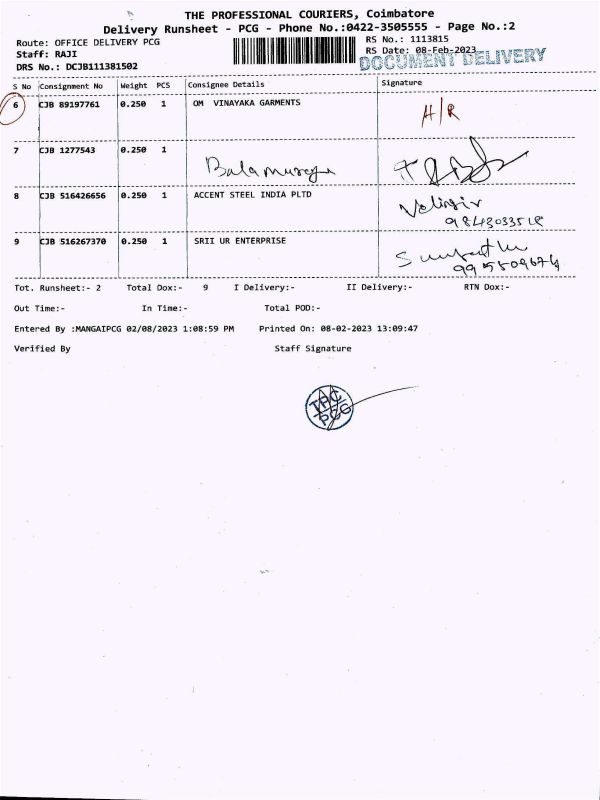 THE PROFESSIONAL COURIERS, Coimbatore
Delivery Runsheet - PCG - Phone No.:0422-3505555 - Page No.:2
Route: OFFICE DELIVERY PCG
Staff: RAJI
DRS No.: DCJB111381502
RS No.: 1113815
RS Date: 08-Feb-2023
DOCUMENT DELIVERY
S No Consignment No Weight PCS Consignee Details Signature
6 CJB 89197761 0.250 1 OM VINAYAKA GARMENTS H/R
7 CJB 1277543 0.250 1
8 CJB 516426656 0.250 1 ACCENT STEEL INDIA PLTD
9 CJB 516267370 0.250 1 SRII UR ENTERPRISE
Tot. Runsheet:- 2 Total Dox:- 9 I Delivery:- II Delivery:- RTN Dox:-
Out Time:- In Time:- Total POD:-
Entered By :MANGAIPCG 02/08/2023 1:08:59 PM Printed On: 08-02-2023 13:09:47
Verified By Staff Signature